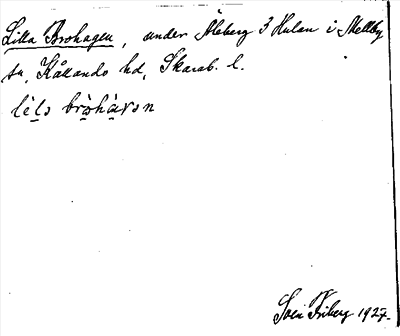 Lilla Brohagen, under Åleberg 3 Hulan i Mellby
sn, Kållands hd, Skarab. l.
lìlə brʊ̀hàɣən
Sven Friberg 1927.